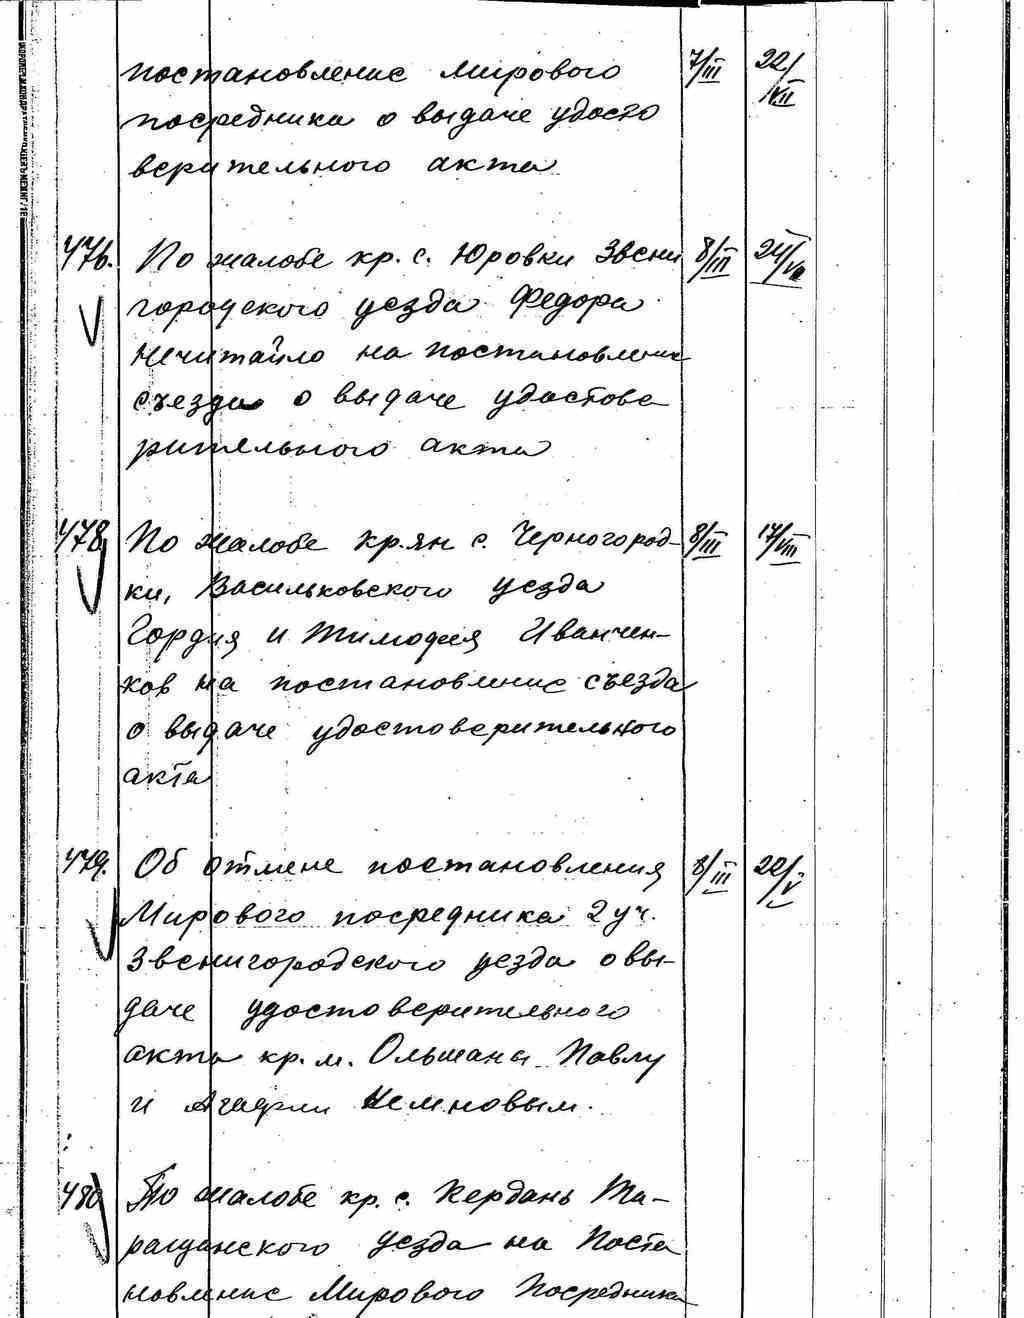 постановление Мирового 7/III 22/VII
посредника о выдаче удосто
верительного акта
476. По жалобе кр. с. Юровки Звени 8/III 24/VII
городского уезда Федора
Нечитайло на постановление
съезда о выдаче удостове
рительного акта
478 По жалобе кр.ян с. Черногород- 8/III 17/VIII
ки, Васильковского уезда
Гордия и Тимофея Иванчен-
ков на постановление съезда
о выдаче удостоверительного
акта
479. Об отмене постановления 8/III 22/V
Мирового посредника 2 уч.
Звенигородского уезда о вы-
даче удостоверительного
акта кр. м. Ольшаны Павлу
и Агафии
480 По жалобе кр. с. Кердань Та-
ращанского уезда на Поста
новление Мирового Посредника